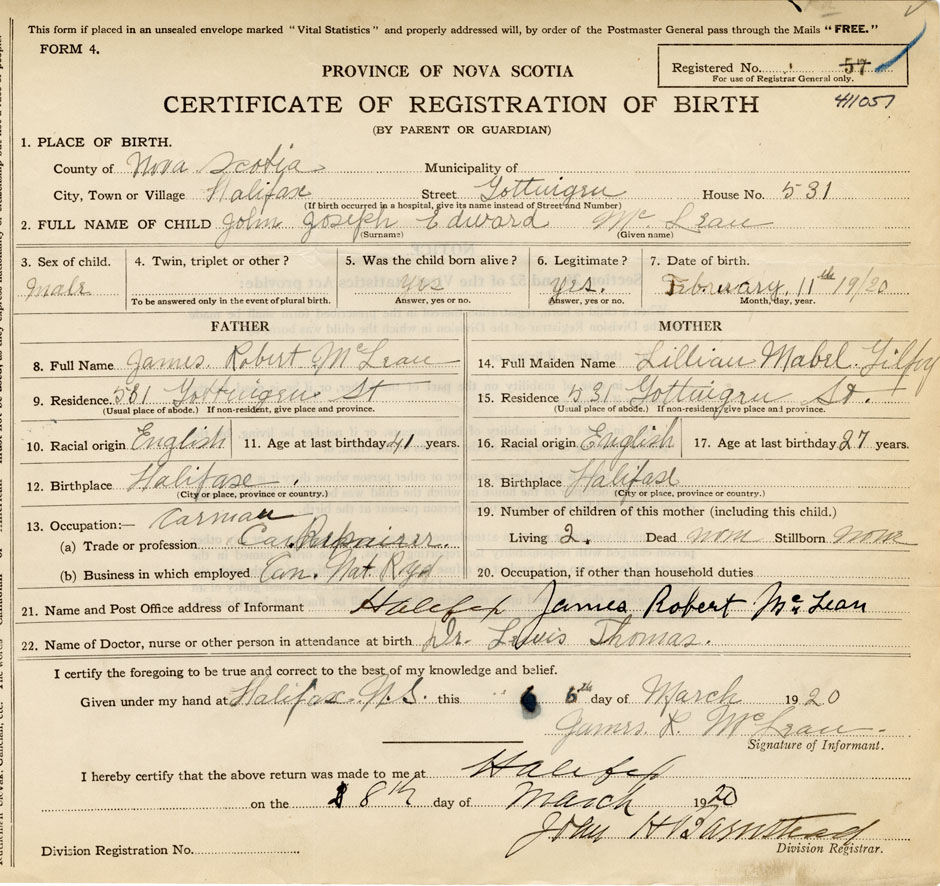 This form if placed in an unsealed envelope marked "Vital Statistics" and properly addressed will, by order of the Postmaster General pass through the Mails "FREE."
FORM 4.
Registered No. 57
For use of Registrar General only.
411057
PROVINCE OF NOVA SCOTIA
CERTIFICATE OF REGISTRATION OF BIRTH
(BY PARENT OR GUARDIAN)
1. PLACE OF BIRTH.
County of Nova Scotia Municipality of
City, Town or Village Halifax Street Gottingen House No. 531
(If birth occurred in a hospital, give its name instead of Street and Number)
2. FULL NAME OF CHILD John Joseph Edward Mc Lean
(Surname) (Given name)
3. Sex of child. 4. Twin, triplet or other? 5. Was the child born alive? 6. Legitimate? 7. Date of birth.
Male Yes Yes. February, 11th 19/20
To be answered only in the event of plural birth. Answer, yes or no. Answer, yes or no. Month, day, year.
FATHER MOTHER
8. Full Name James Robert McLean 14. Full Maiden Name Lillian Mabel Gilfoy
9. Residence. 531 Gottingen St 15. Residence 531 Gottingen St.
(Usual place of abode.) If non-resident, give place and province. (Usual place of abode.) If non-resident, give place and province.
10. Racial origin English 11. Age at last birthday 41 years. 16. Racial origin English 17. Age at last birthday 27 years.
12. Birthplace Halifax. 18. Birthplace Halifax
(City or place, province or country.) (City or place, province or country.)
13. Occupation:— Carman 19. Number of children of this mother (including this child.)
(a) Trade or profession Car Repairer. Living 2. Dead none Stillborn none
(b) Business in which employed Can. Nat. Ryd 20. Occupation, if other than household duties
21. Name and Post Office address of Informant Halifax James Robert Mc Lean
22. Name of Doctor, nurse or other person in attendance at birth Dr. Lewis Thomas.
I certify the foregoing to be true and correct to the best of my knowledge and belief.
Given under my hand at Halifax N.S. this 6 6th day of March 1920
James R. McLean
Signature of Informant.
I hereby certify that the above return was made to me at Halifax
on the 8th day of March 1920
John H Barnstead
Division Registration No. Division Registrar.